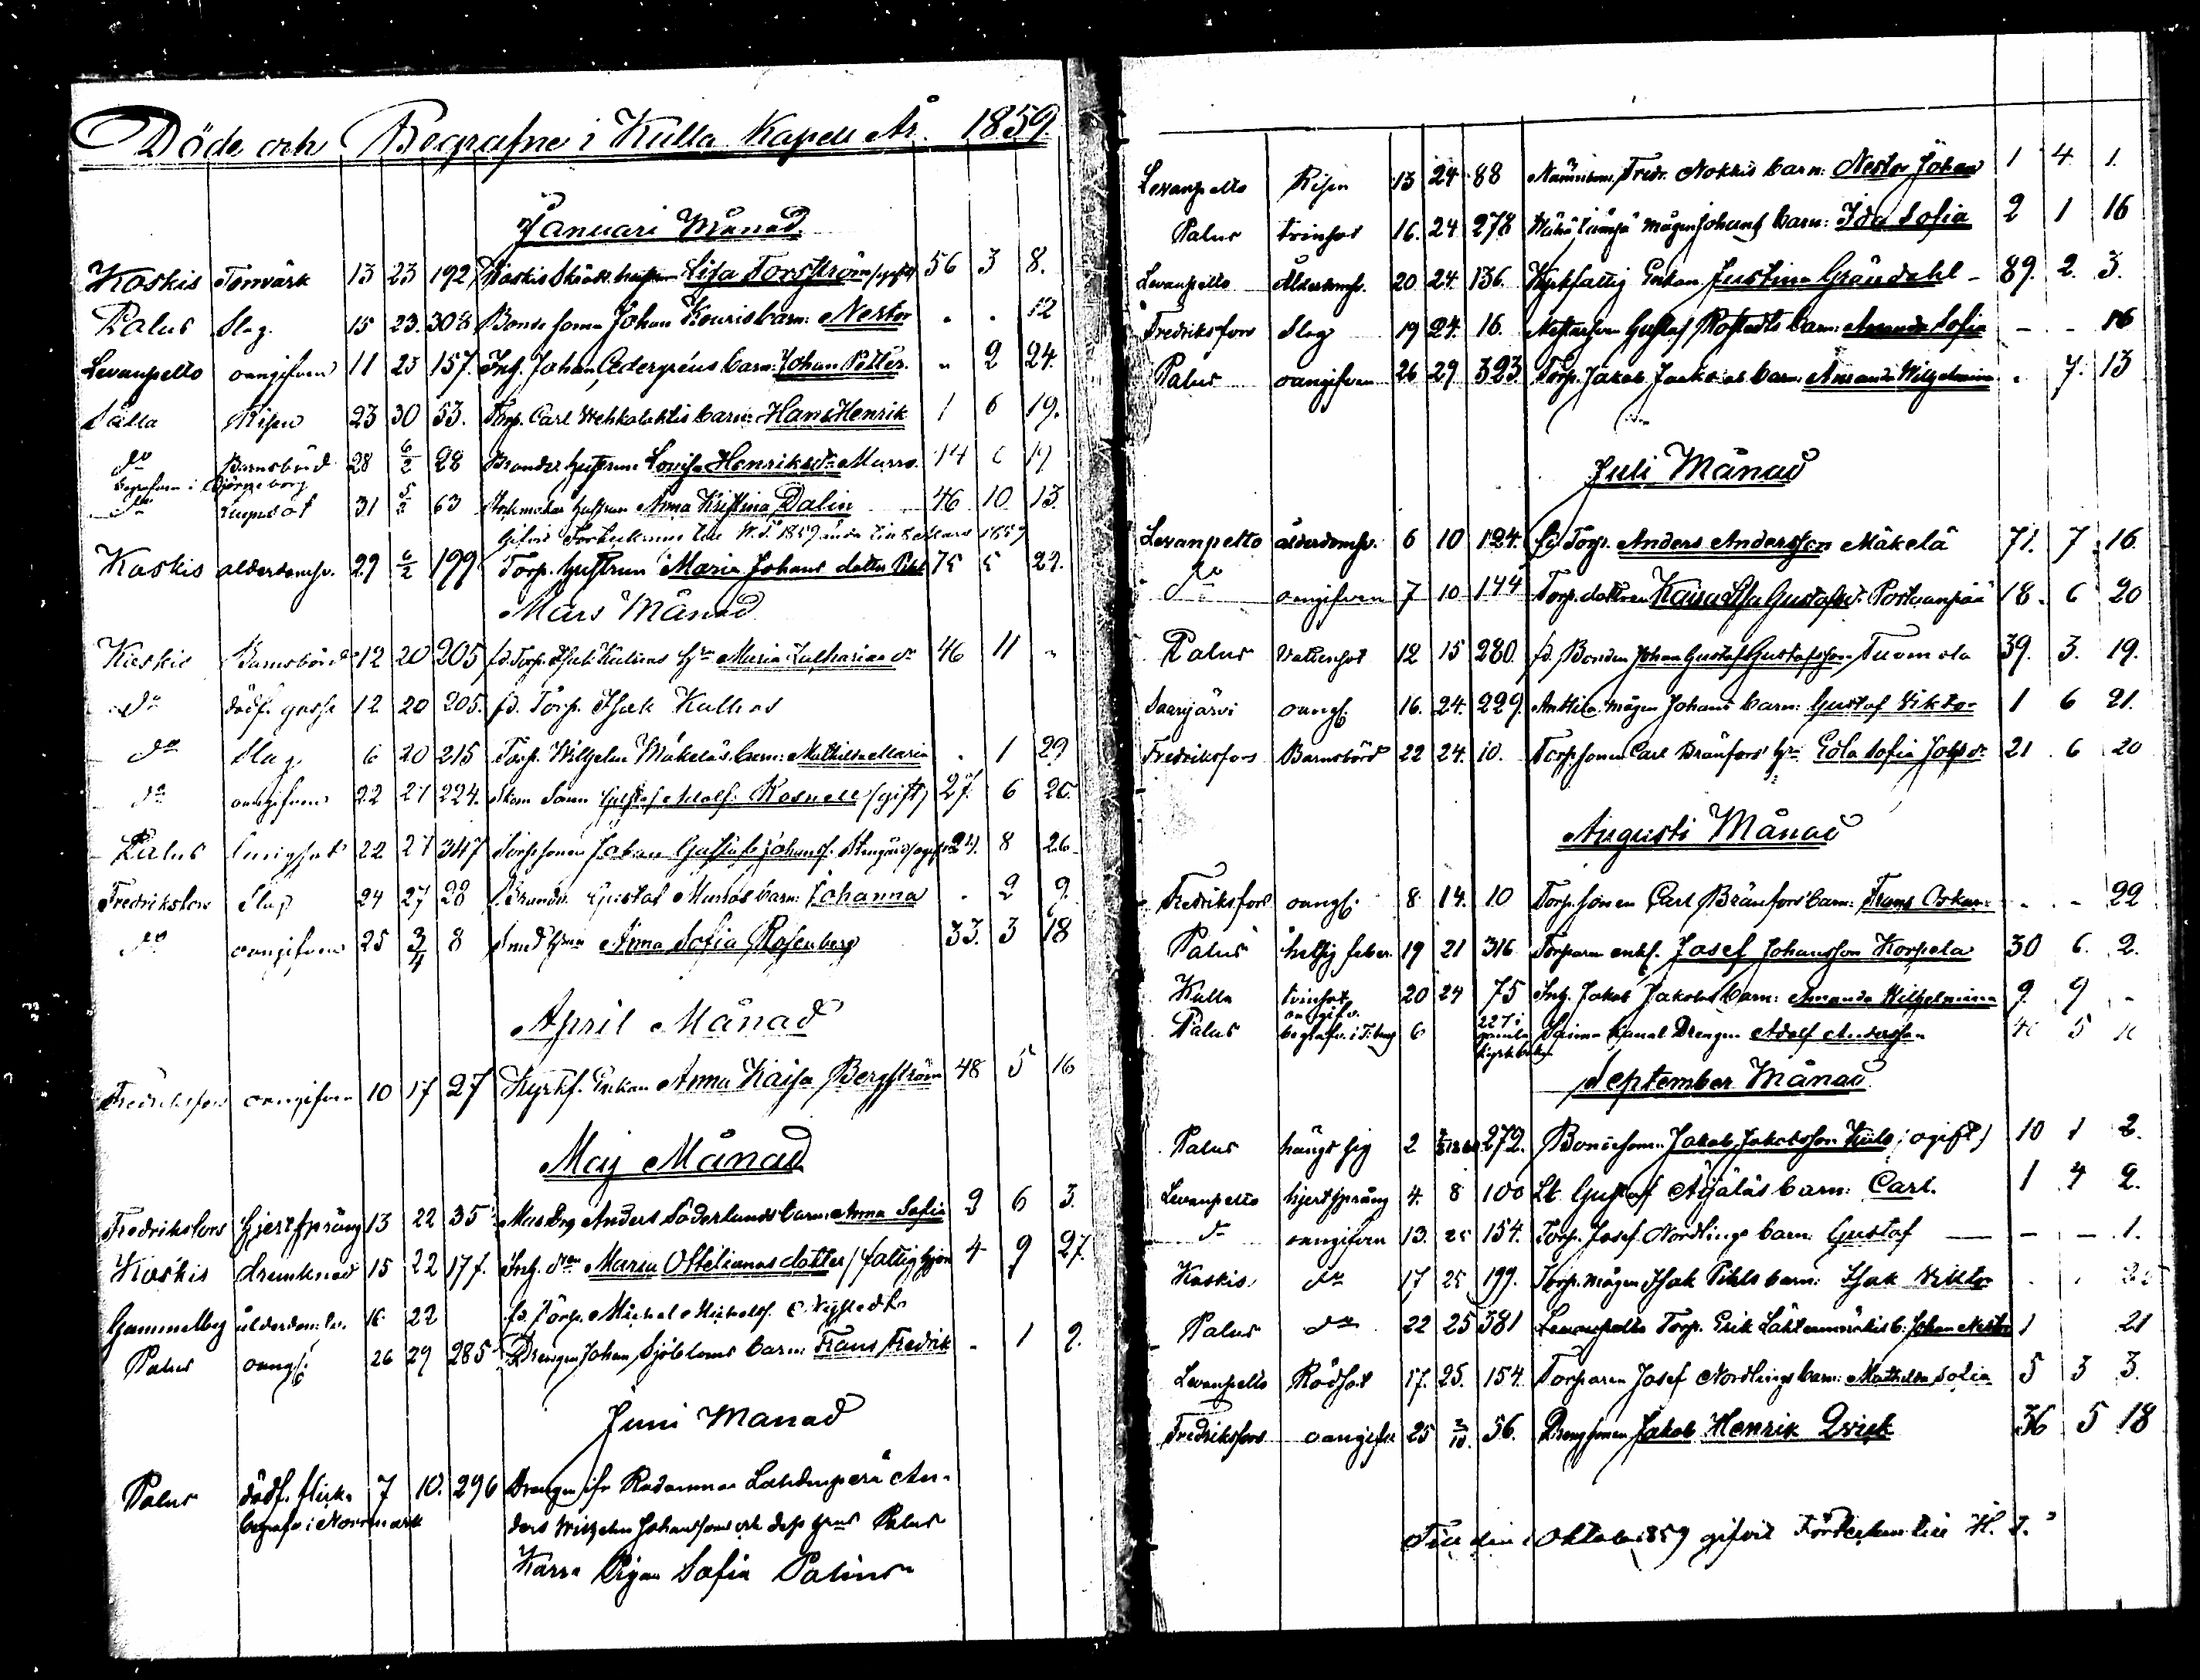 Döde och Begrafne i Kulla Kapell År 1859.
Januari Månad.
Koskis Tonvärk 13 23 192 Koskis Lisa Torsström 56 3 8.
Palus Slag. 15 23. 308 Bonde sonen Johan Kouris barn: Nestor . . 12
Levanpelto oangifven 11 23 157. Inh. Johan Cedergréns barn: Johan Petter. " 2 24.
Kulla Kisen 23 30 53. Torp. Carl Wehkalahtis barn: Hans Henrik 1 6 19.
do Barnsbörd 28 6/2 28 hustrun Lovisa Henriksdr Murro. 14
begrafven i Björneborg
do Lungsot 31 5/2 63 hustrun Anna Kristina Dalin 46 10 13.
Koskis alderdomsv. 29 6/2 199 Torp. hustrun Maria Johans dotter 75 5 22.
Mars Månad
Koskis Barnsbörd 12 20 205 fd. Torp. Isak Kullas Hru Maria Katharina dr 46 11 "
do dödf. gosse 12 20 205. fd. Torp. Isak Kullas
do Slag. 6 20 215 Torp. Wilhelm Mäkeläs barn: Mathilda Maria . 1 29
do oangifven 22 27 224. Adolf Rosnell (gift) 27. 6 20.
Palus Lungsot 22 27 347 Torpsonen Johan Gustaf Johans. 24. 8 26
Fredriksfors Slag 24 27 28 Gustaf barn: Johanna . 2 9.
do oangifven 25 3/4 8 Anna Sofia Rosenberg 33. 3 18
April Månad
Fredriksfors oangifven 10 17 27 Kyrkf. Enkan Anna Kaisa Bergström 48 5 16
Maj Månad
Fredriksfors hjertsprång 13 22 35 Anders Söderlunds barn: Anna Sofia 2 6 3.
Koskis drunknad 15 22 177. Inh. Maria Ottelianas dotter / fattighjon 4 9 27.
Gammelby ålderdomsv. 16 22 fd. Torp. Michel Michelss.
Palus oangf. 26 29 285 Drengen Johan Sjöbloms barn: Frans Fredrik . 1 2.
Juni Månad
Palus dödf. flicka 7 10. 296 Drengen ifr An-
begrafv. i Norrmark ders Wilhelm Johanssons och dess hrus
Pigan Sofia
Levanpelto Kisen 13 24 88 Fredr. Nokkis barn: Nestor Johan 1 4 1.
Palus tvinsot 16. 24 278 mågen Johans barn: Ida Sofia 2 1 16
Levanpelto Ålderdomsv. 20 24 136. Kyrkfattig Enkan Justina Grändahl - 89. 2. 3.
Fredriksfors Slag 19 24. 16. Gustaf Rostedts barn: Amanda Sofia - - 16
Palus oangifven 26 29 323 Torp. Jakob barn: Amanda Wilhelmina . 7. 13
Juli Månad
Levanpelto ålderdomsv. 6 10 124. fd. Torp. Anders Andersson Mäkelä 71. 7 16
do oangifven 7 10 144 Torp. dottren Kaisa Lisa Gustafsdr 18. 6 20
Palus Vattusot 12 15 280. fd. Bonden Johan Gustaf Gustafsson Tuomola 39. 3. 19.
Saarijärvi oangf. 16. 24. 229. Anttila mågen Johans barn: Gustaf Viktor 1 6 21.
Fredriksfors Barnsbörd 22 24. 10. Torpsonen Carl Bränfors Hru Eva Sofia 21 6 20
Augusti Månad
Fredriksfors oangf. 8. 14. 10 Torpsonen Carl Bränfors barn: Frans Oskar - - 22
Palus hetsig feber 19 21 316 Torparen enkl. Josef Johansson Korpela 30 6. 2.
Kulla tvinsot 20 24 75 Inh. Jakob barn: Amanda Wilhelmina 9. 9 -
Palus oangifv. begrafv. i 6 227 i gamla Kyrkboken Saima Kanal Drengen Adolf Andersson
September Månad
Palus hängt sig 2 272. Bondesonen Jakob Jakobsson (ogift) 10 1 2.
Levanpelto hjertsprång 4. 8 100 Gustaf Äijäläs barn: Carl. 1 4 2.
do oangifven 13. 25 154. Torp. Josef Nordlings barn: Gustaf — - - 1.
Koskis do 17 25 199. Torp. mågen Isak Pihls barn: Isak Viktor
Palus do 22 25 381 Torp. Erik b: Johan Nestor 1 21
Levanpelto Rödsot 17. 25. 154. Torparen Josef Nordlings barn: Mathilda Sofia 5 3 3.
Fredriksfors oangifv. 25 2/10. 56. Drengsonen Jakob Henrik Qvick 36 5 18
Till den 1 Oktober 1859 gifvit Förteckn. till H. T.